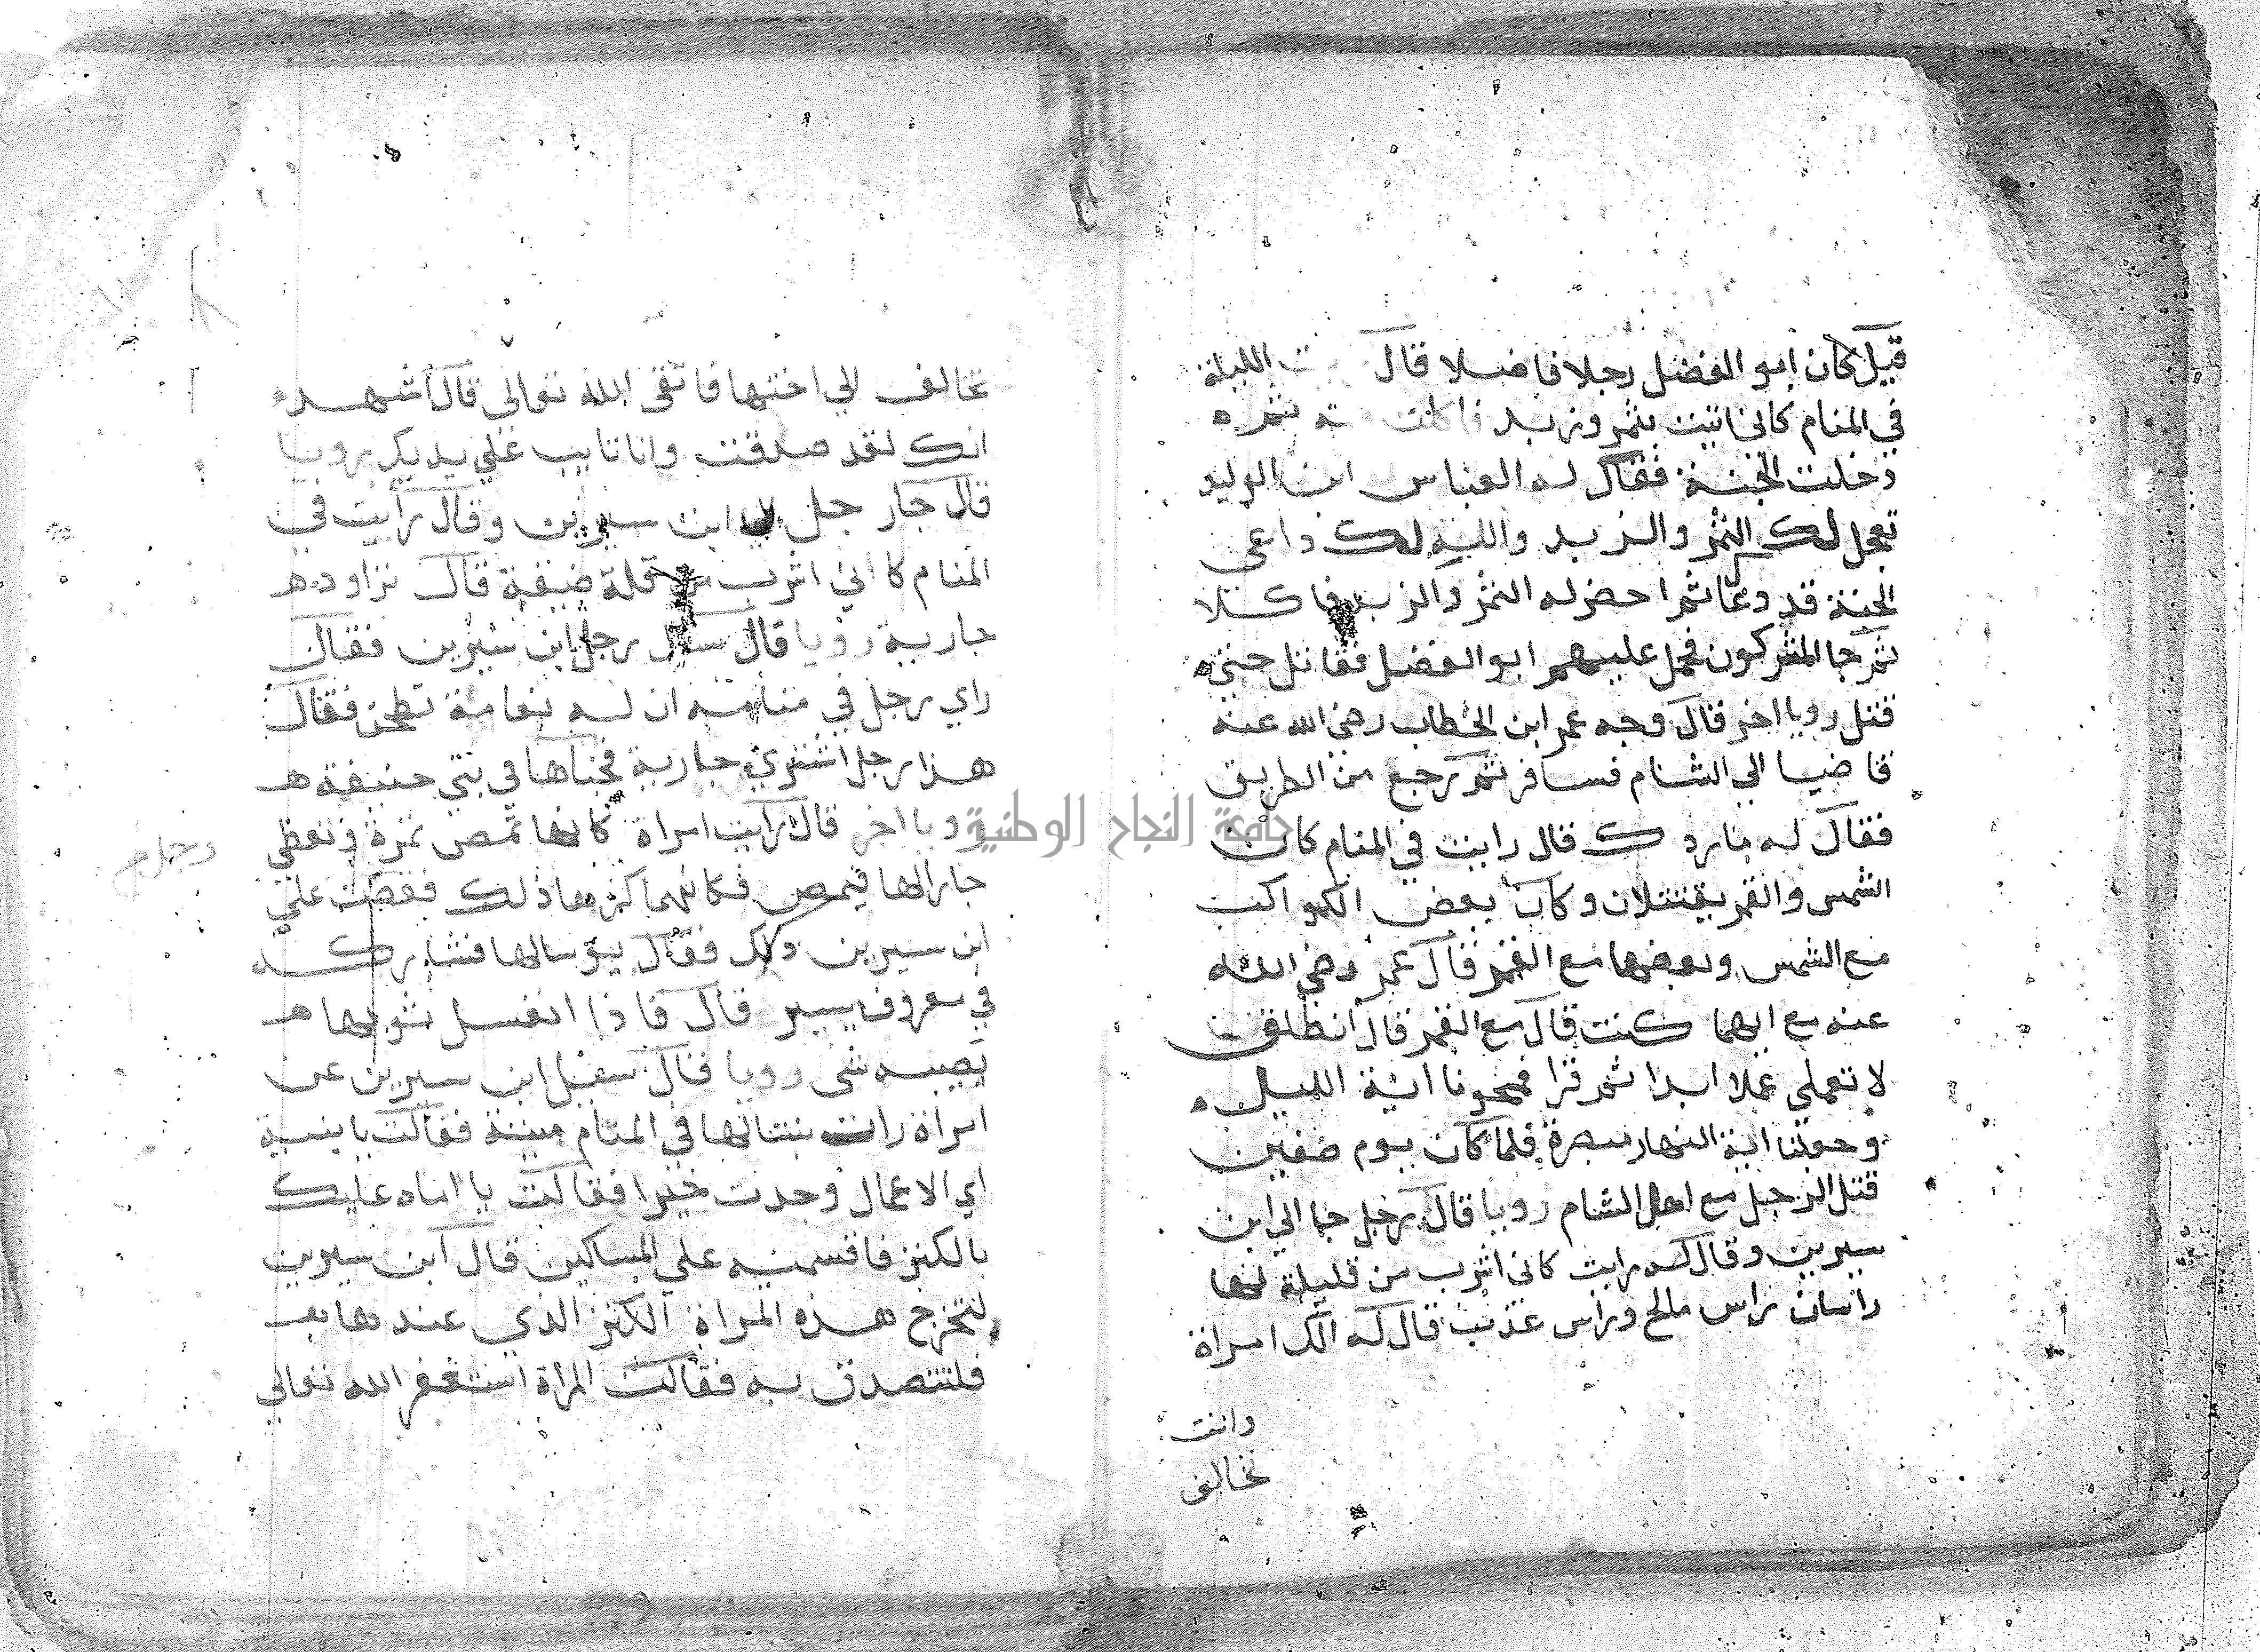 قيل كان ابو الفضل رجلا فاضلا قال الليلة
في المنام كاني اتيت بتمر وزبد فاكلت تمره
دخلت الجنة فقال له العباس ابن الوليد
تعجل لك التمر والزبد والله لك داعى
الجنة قد دعا ثم احضر له التمر والزبد فاكلا
ثم جا المشركون فحمل عليهم ابو الفضل فقاتل حتى
قتل رويا اخر قال وجه عمر ابن الخطاب رضي الله عنه
قاضيا الي الشام فسافر ثم رجع من الطريق
فقال له ما ردك قال رايت في المنام كان
الشمس والقمر يقتتلان وكان بعض الكواكب
مع الشمس وبعضها مع القمر قال عمر رضي الله
عنه مع ايهما كنت قال مع القمر قال انطلق
لا تعملي عملا ابدا ثم قرا فمحونا اية الليل
وجعلنا اية النهار مبصرة فلما كان يوم صفين
قتل الرجل مع اهل الشام رويا قال رجل جا الي ابن
سيرين وقال له رايت كاني اشرب من قليلة لها
راسان راس مالح وراس عذب قال له الك امراة
وانت
تخالف
تخالف الي اختها فاتقى الله تعالى قال اشهد
انك لقد صدقت وانا تايب على يديك رويا
قال جا رجل ابن سيرين وقال رايت في
المنام كاني اشرب من قلة ضيقة قال تراود
جارية رويا قال سال رجل ابن سيرين فقال
راي رجل في منامه ان له نعامة تطحن فقال
هذا رجل اشتري جارية فخباها في بني حنيفة
رويا اخر قال رايت امراة كانها تمص تمرة وتعطي
جارا لها فيمص فكانهما كثر ذلك فقصت علي
رجل
ابن سيرين ذلك فقال فتشاركه
في معروف يسير قال فاذا انغسل ثوبهما
يصيبه شى رويا قال سيل ابن سيرين عن
امراة رات بنتا لها في المنام ميتة فقالت يا بنية
اي الاعمال وجدت خيرا فقالت يا اماه عليك
بالكنز فاقسميه على المساكين قال ابن سيرين
لتخرج هذه المراة الكنز الذي عندها
فلتتصدق به فقالت المراة استغفر الله تعالى
جامعة النجاح الوطنية